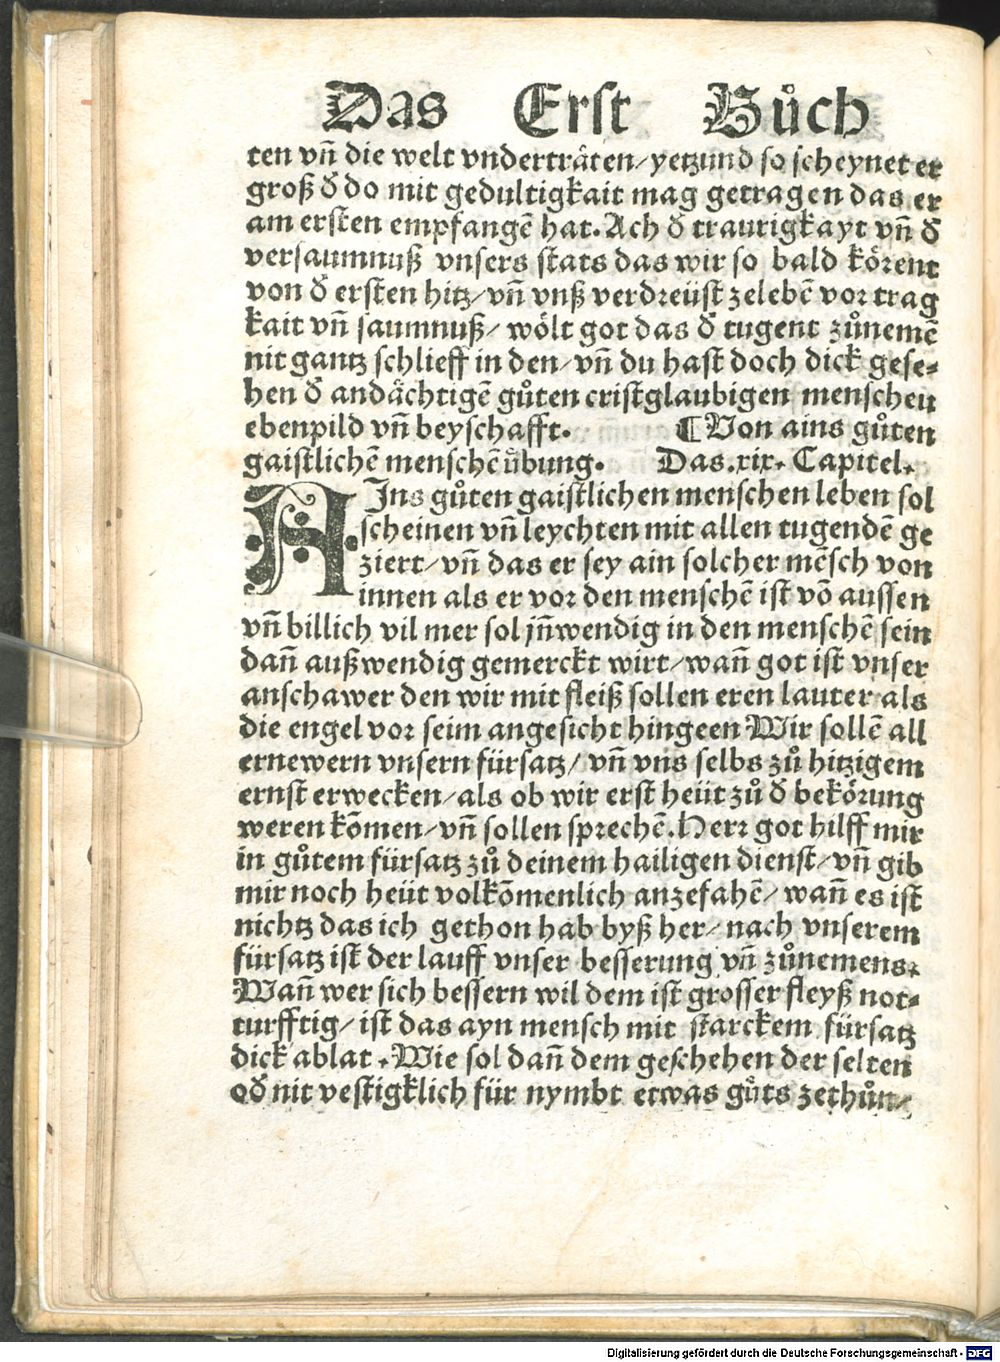 Das Erst Bůch
ten vn̄ die welt vnderträten/ yetzund so scheynet er
groß ď do mit gedultigkait mag getragen das er
am ersten empfangē hat. Ach ď traurigkayt vn̄ ď
versaumnuß vnsers stats das wir so bald körent
von ď ersten hitz/ vn̄ vnß verdreüst zelebē vor trag
kait vn̄ saumnuß/ wölt got das ď tugent zůnemē
nit gantz schlieff in den/ vn̄ du hast doch dick gese-
hen ď andächtigē gůten cristglaubigen menschen
ebenpild vn̄ beyschafft. ¶ Von ains gůten
gaistlichē menschē übung. Das .xix. Capitel.
AIns gůten gaistlichen menschen leben sol
scheinen vn̄ leychten mit allen tugendē ge
ziert/ vn̄ das er sey ain solcher mēsch von
innen als er vor den menschē ist vō aussen
vn̄ billich vil mer sol jn̄wendig in den menschē sein
dan̄ außwendig gemerckt wirt/ wan̄ got ist vnser
anschawer den wir mit fleiß sollen eren lauter als
die engel vor seim angesicht hingeen Wir sollē all
ernewern vnsern fürsatz/ vn̄ vns selbs zů hitzigem
ernst erwecken/ als ob wir erst heüt zů ď bekörung
weren kōmen/ vn̄ sollen sprechē. Herr got hilff mir
in gůtem fürsatz zů deinem hailigen dienst/ vn̄ gib
mir noch heüt volkōmenlich anzefahē/ wan̄ es ist
nichtz das ich gethon hab byß her/ nach vnserem
fürsatz ist der lauff vnser besserung vn̄ zůnemens.
Wan̄ wer sich bessern wil dem ist grosser fleyß not-
turfftig/ ist das ayn mensch mit starckem fürsatz
dick ablat. Wie sol dan̄ dem geschehen der selten
oď nit vestigklich für nymbt etwas gůts zethůn/
Digitalisierung gefördert durch die Deutsche Forschungsgemeinschaft - DFG